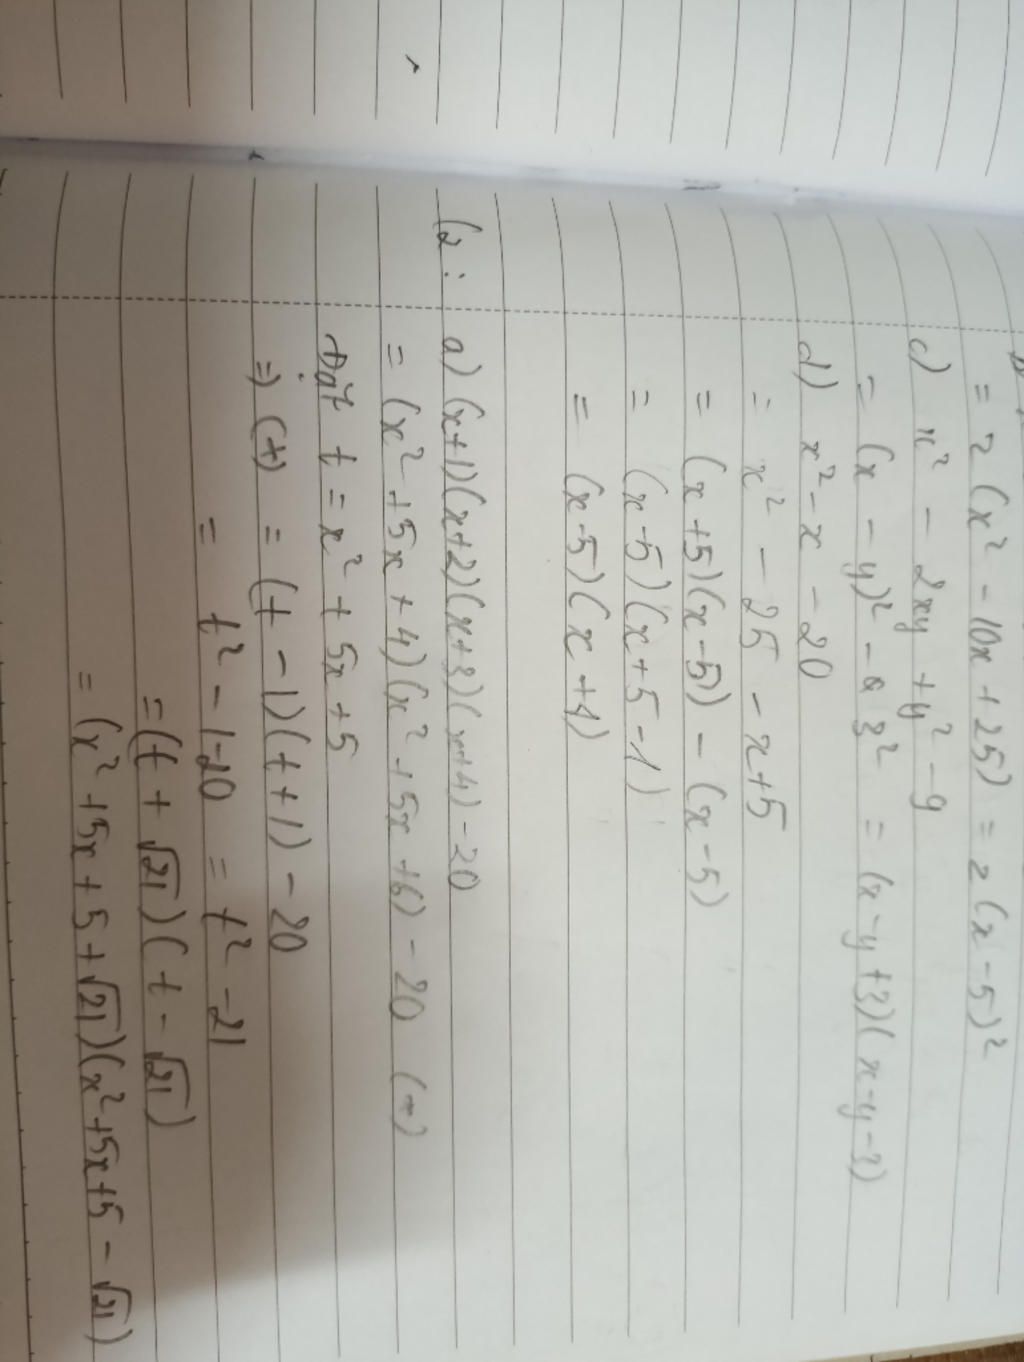 = 2(x² - 10x + 25) = 2(x - 5)²
c) x² - 2xy + y² - 9
= (x - y)² - 3² = (x - y + 3)(x - y - 3)
d) x² - x - 20
= x² - 25 - x + 5
= (x + 5)(x - 5) - (x - 5)
= (x - 5)(x + 5 - 1)
= (x - 5)(x + 4)
(2: a) (x+1)(x+2)(x+3)(x+4) - 20
= (x² + 5x + 4)(x² + 5x + 6) - 20 (*)
Đặt t = x² + 5x + 5
=> (*) = (t - 1)(t + 1) - 20
= t² - 1 - 20 = t² - 21
= (t + √21)(t - √21)
= (x² + 5x + 5 + √21)(x² + 5x + 5 - √21)